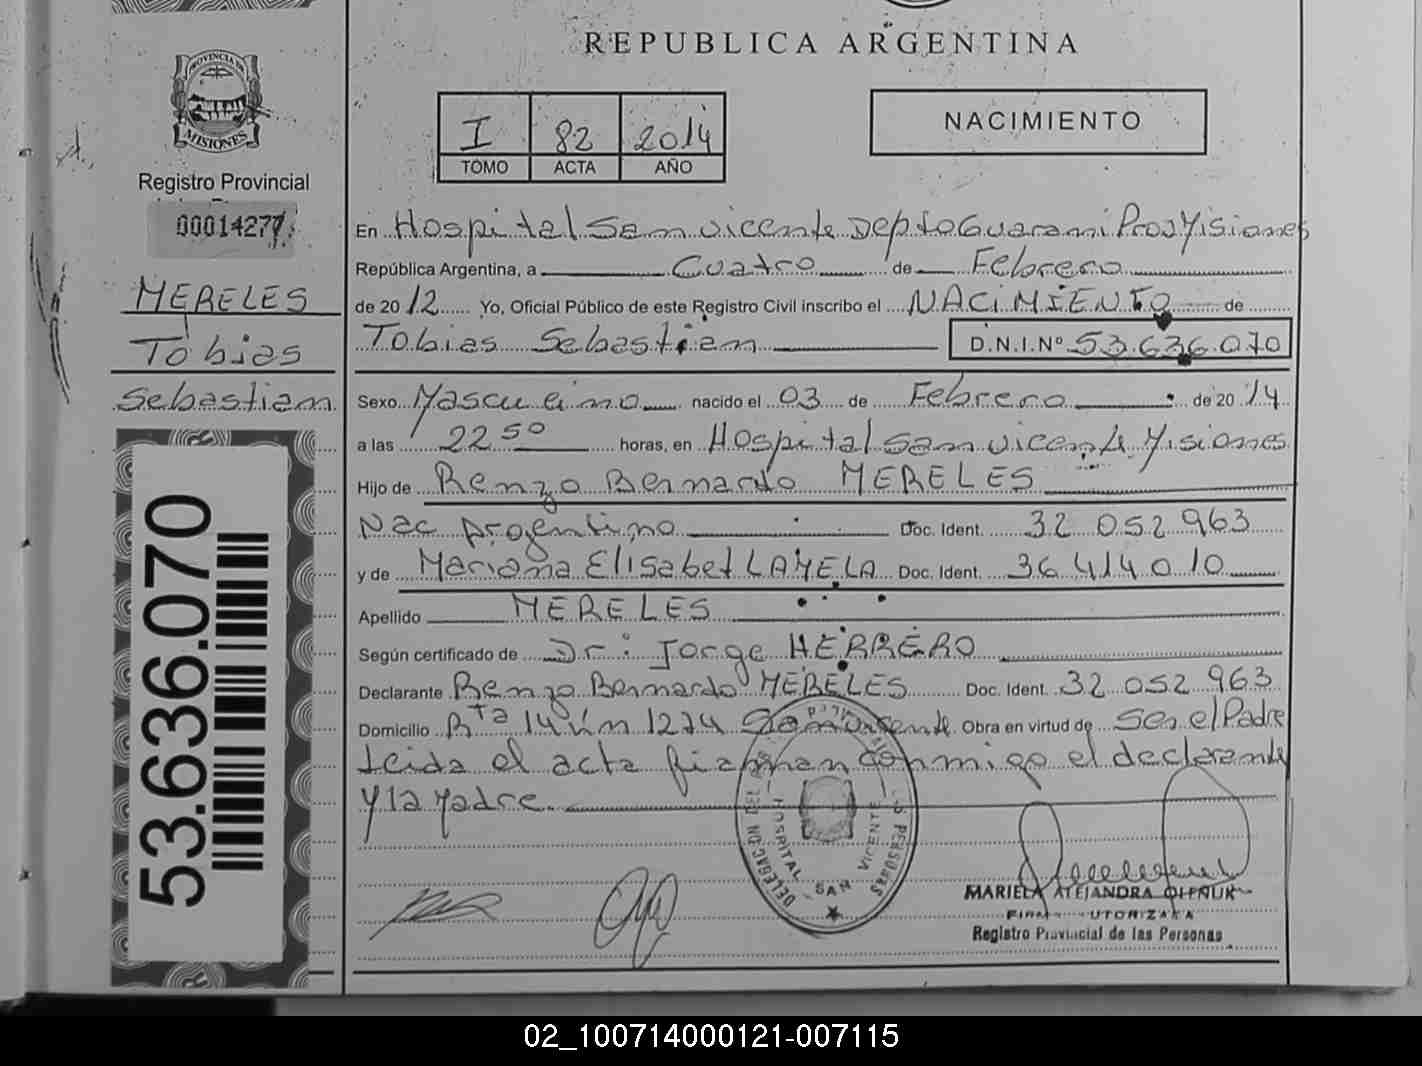 REPUBLICA ARGENTINA
PROVINCIA DE
MISIONES
Registro Provincial
00014277
MERELES
Tobias
Sebastian
53.636.070
I 82 2014
TOMO ACTA AÑO
NACIMIENTO
En Hospital San Vicente Depto Guarani Prov Misiones
República Argentina, a Cuatro de Febrero
de 2012 Yo, Oficial Público de este Registro Civil inscribo el NACIMIENTO de
Tobias Sebastian D.N.I.Nº 53.636.070
Sexo Masculino nacido el 03 de Febrero de 2014
a las 22 50 horas, en Hospital San Vicente Misiones
Hijo de Renzo Bernardo MERELES
Nac Argentino Doc. Ident. 32 052 963
y de Mariana Elisabet LAMELA Doc. Ident. 36 414 010
Apellido MERELES
Según certificado de Dr: Jorge HERRERO
Declarante Renzo Bernardo MERELES Doc. Ident. 32 052 963
Domicilio Rta 14 Km 1274 San Vicente Obra en virtud de Ser el Padre
Leida el acta firman conmigo el declarante
y la Madre
DELEGACION DEL
PERSONAS
HOSPITAL SAN VICENTE
MARIELA ALEJANDRA
FIRMA AUTORIZADA
Registro Provincial de las Personas
02_100714000121-007115